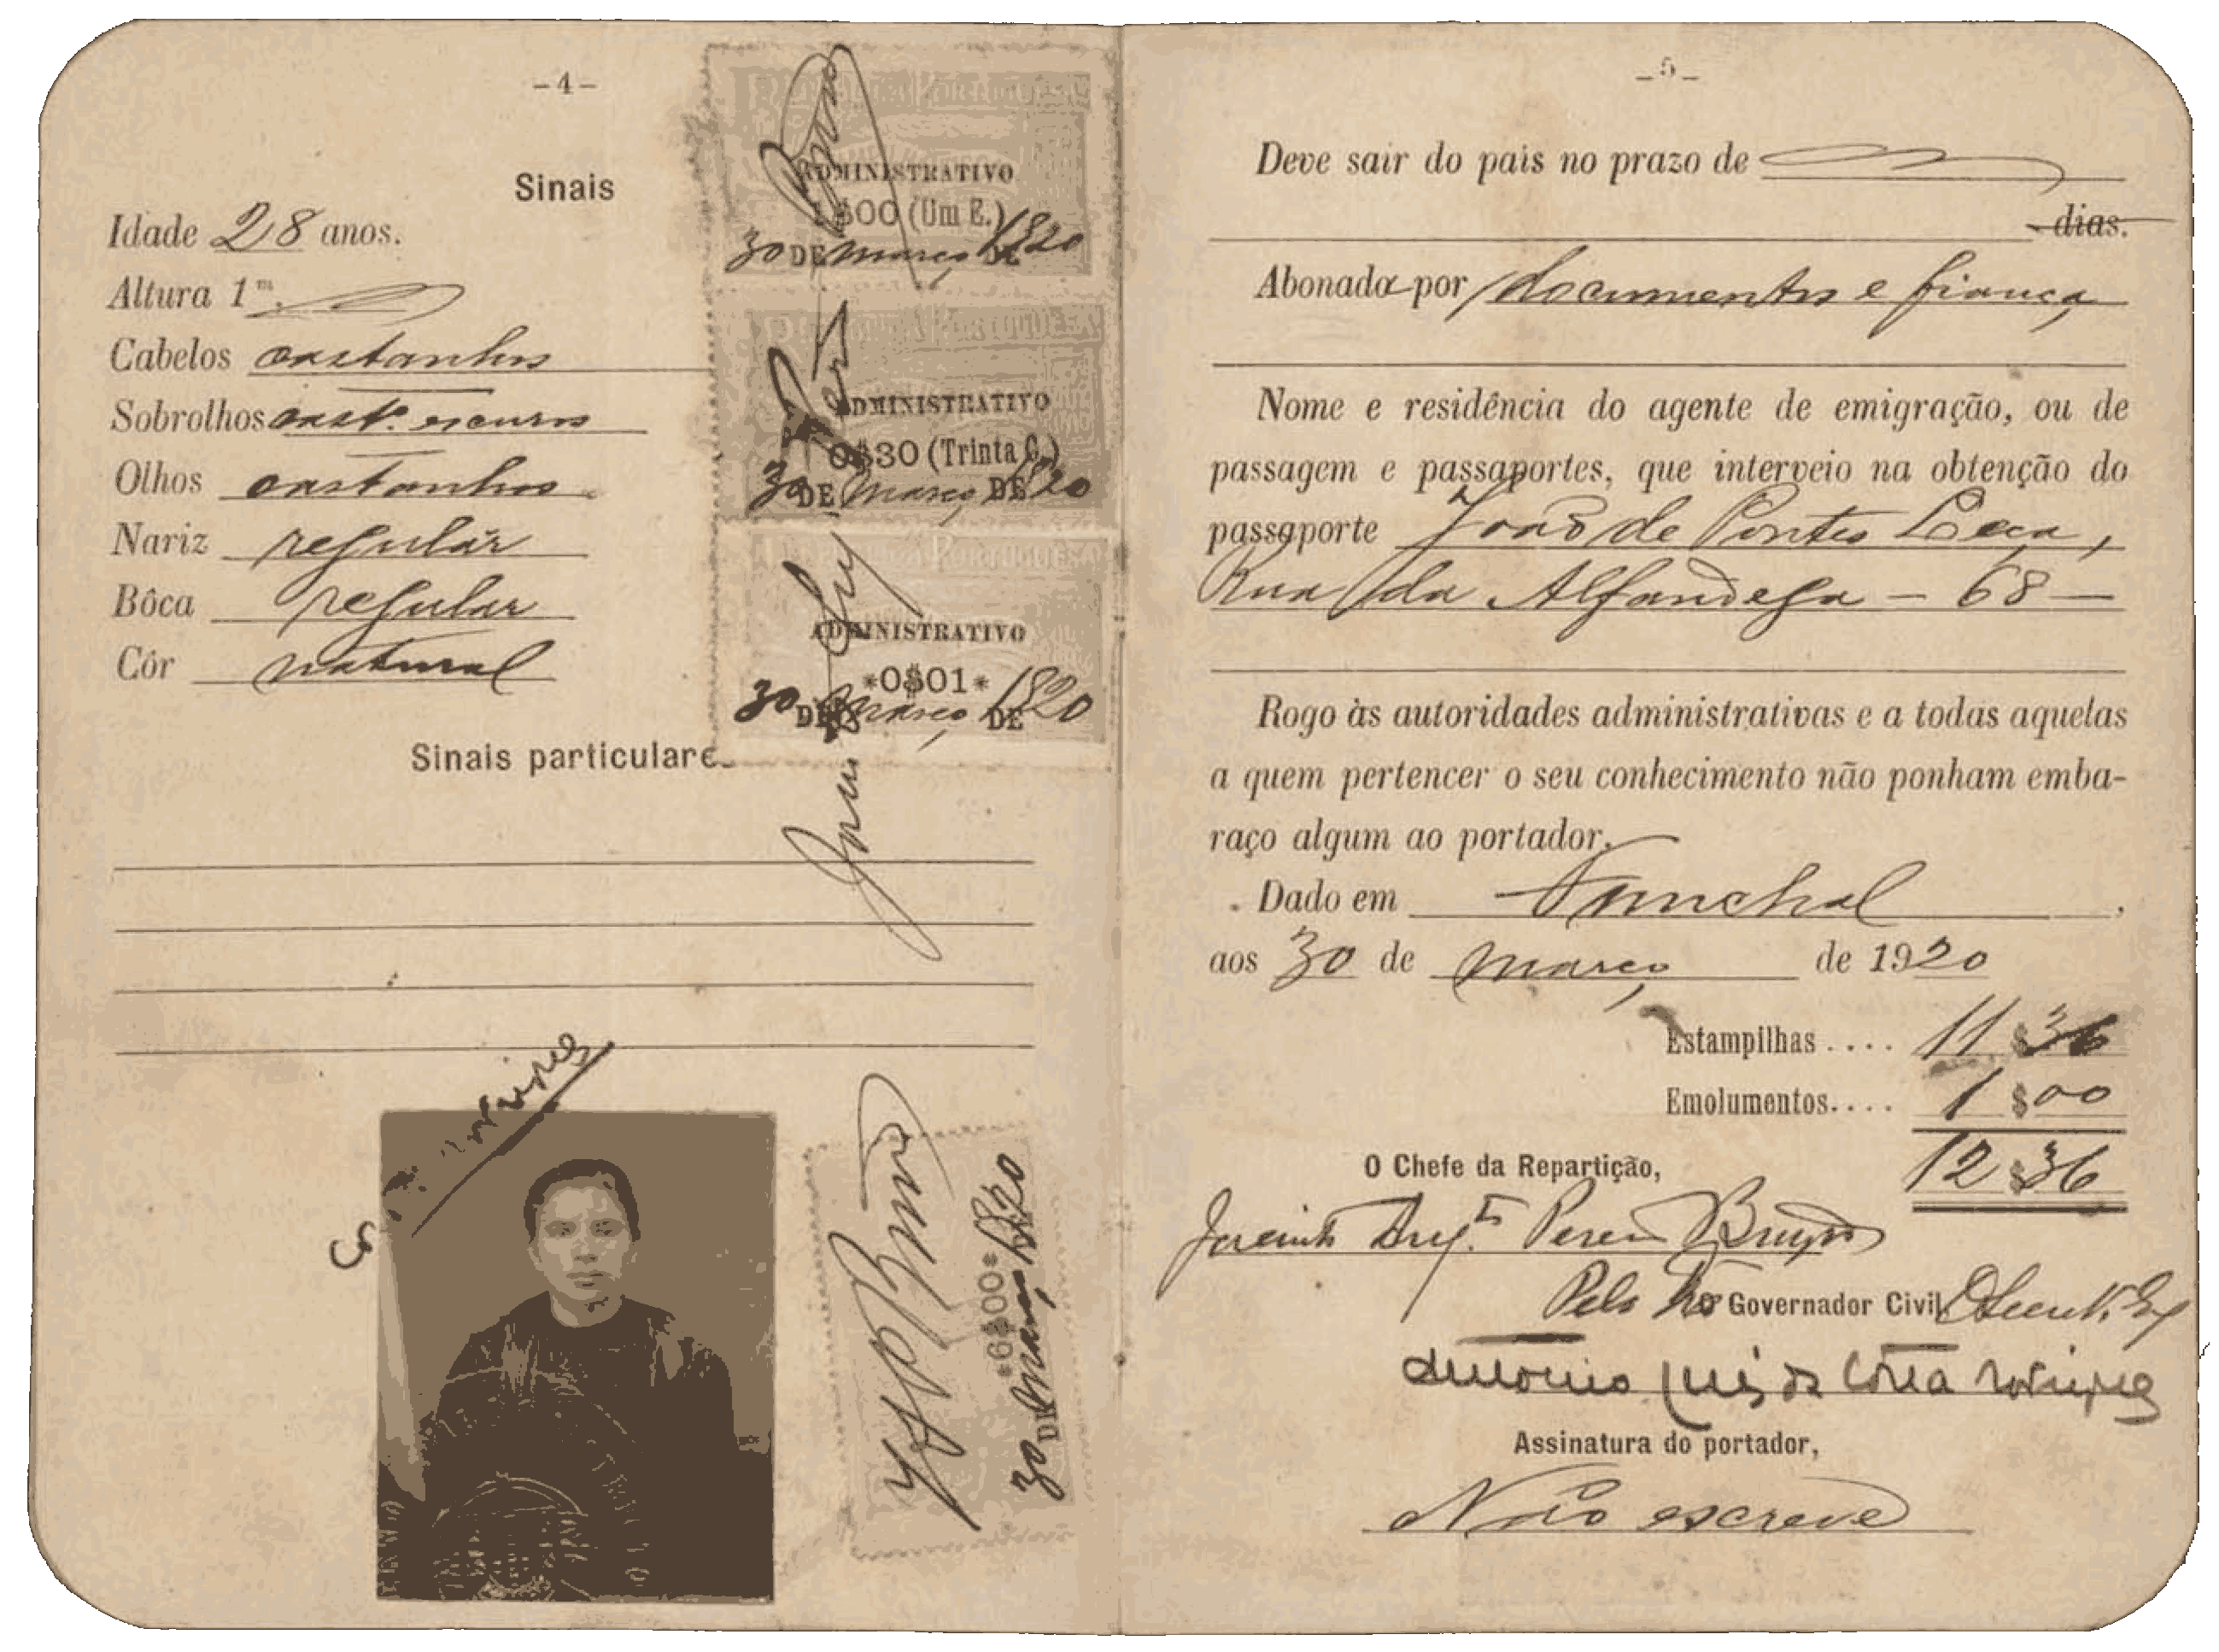 -4-
Sinais
Idade 28 anos.
Altura 1m.
Cabelos castanhos
Sobrolhos casto. escuros
Olhos castanhos
Nariz regular
Bôca regular
Côr natural
Sinais particulare
ADMINISTRATIVO
1$00 (Um E.)
30 DE março DE 1920
REPUBLICA PORTUGUESA
ADMINISTRATIVO
0$30 (Trinta C.)
30 DE março DE 1920
PORTUGUESA
ADMINISTRATIVO
*0$01*
30 DE março DE 1920
*6$00*
30 DE março 1920
-5-
Deve sair do pais no prazo de
dias.
Abonada por documentos e fiança
Nome e residência do agente de emigração, ou de
passagem e passaportes, que interveio na obtenção do
passaporte João de Pontes Leça,
Rua da Alfandega - 68 -
Rogo às autoridades administrativas e a todas aquelas
a quem pertencer o seu conhecimento não ponham emba-
raço algum ao portador.
Dado em Funchal.
aos 30 de março de 1920
Estampilhas .... 11$36
Emolumentos.... 1$00
12$36
O Chefe da Repartição,
Jacinto Augto. Pereira Bruno
Pelo O Governador Civil
Antonio Luis da Costa Rodrigues
Assinatura do portador,
Não escreve